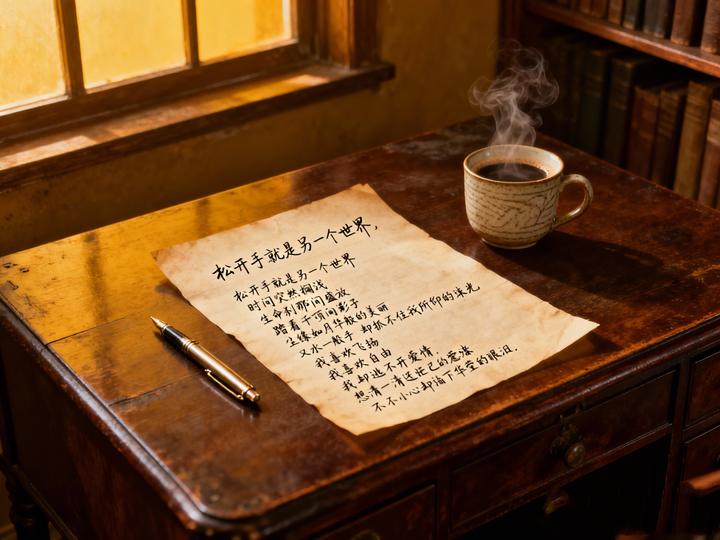 松开手就是另一个世界,
松开手就是另一个世界
时间突然搁浅
生命刹那间盛放
踏着千顷间影子
尘缘如月华般的美丽
又水一般子 却抓不住我所仰的流光
我喜欢飞扬
我喜欢自由
我却逃不开爱情
想清一清迷茫已的
不不小心却落下华堂的眼泪.